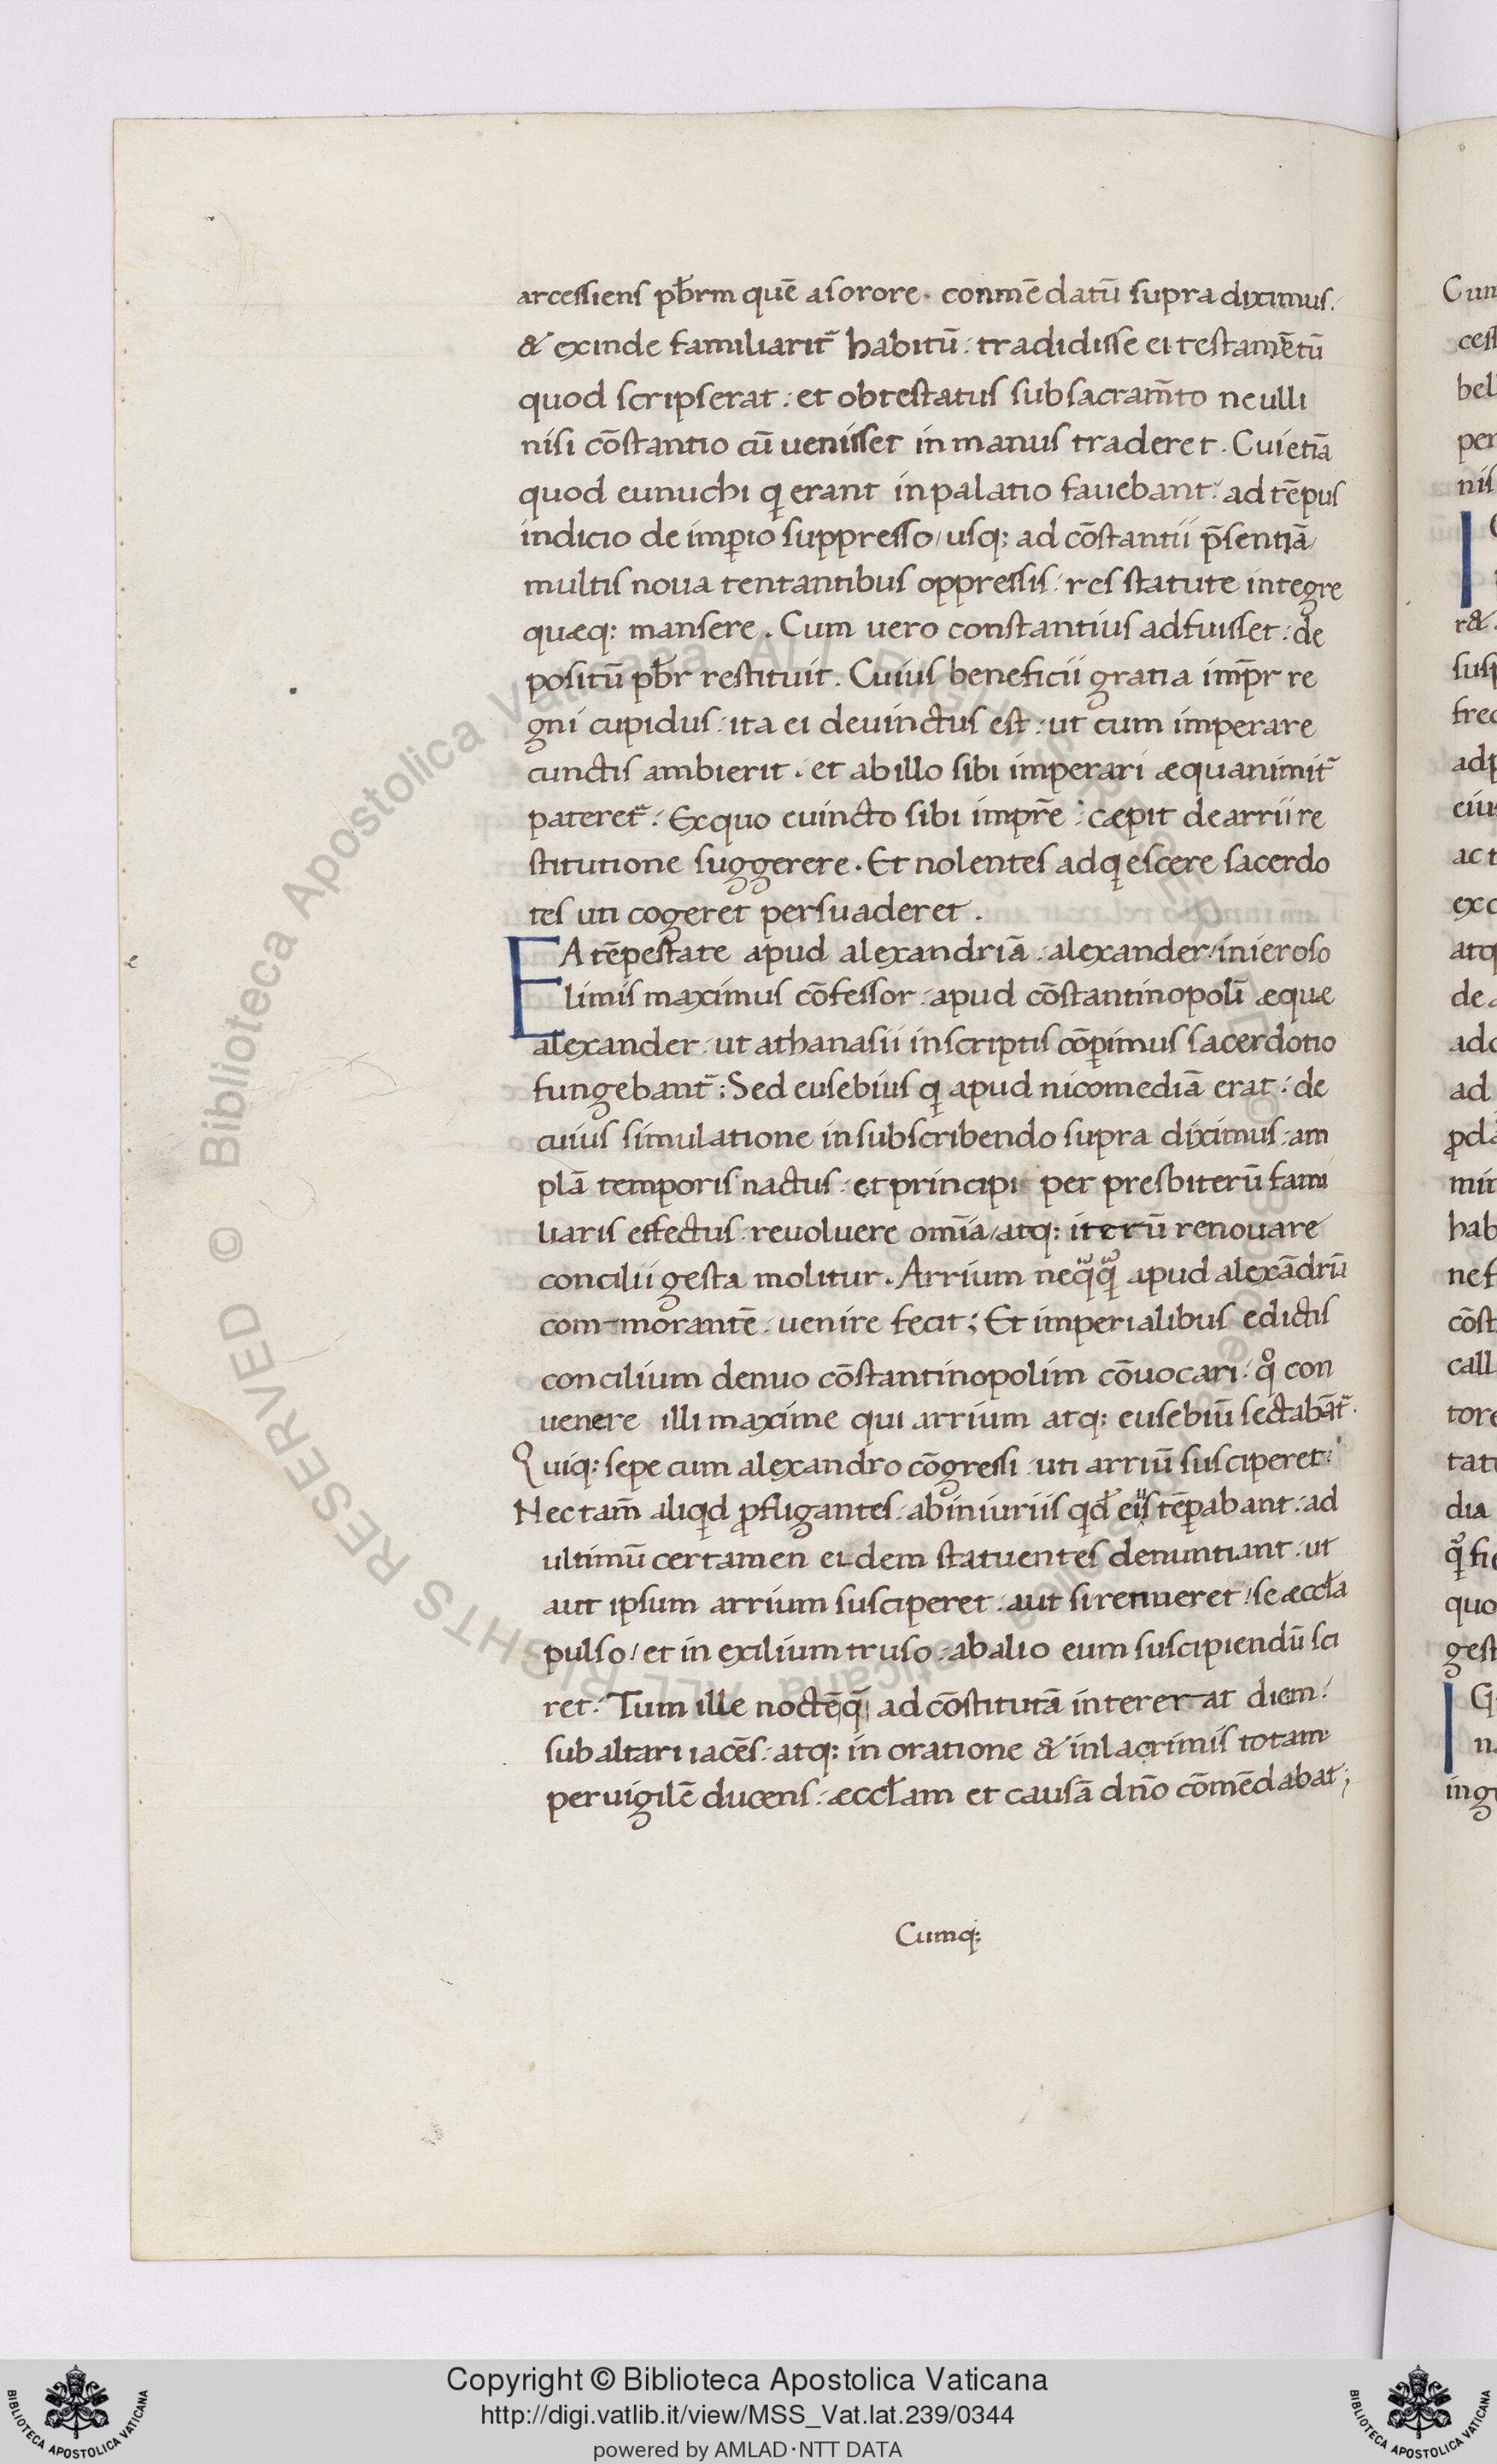 arcessiens pƀrm quē a sorore. conmēdatū supra diximus.
& exinde familiarit᷑ habitū. tradidisse ei testam̄tū
quod scripserat. et obtestatus sub sacram̄to ne ulli
nisi cōstantio cū uenisset in manus traderet. Cui etiā
quod eunuchi ꝗ erant in palatio fauebant. ad tēpus
indicio de imꝑio suppresso/ usq; ad cōstantii p̄sentiā
multis noua tentantibus oppressis. res statute integre
quæq; mansere. Cum uero constantius adfuisset. de
positū pƀr restituit. Cuius beneficii gratia imp̄r re
gni cupidus. ita ei deuinctus est. ut cum imperare
cunctis ambierit. et ab illo sibi imperari æquanimit᷑
pateret᷑. Ex quo euincto sibi impr̄e. cæpit de arrii re
stitutione suggerere. Et nolentes adꝗescere sacerdo
tes uti cogeret persuaderet.
EA tēpestate apud alexandriā. alexander. in ieroso
limis maximus cōfessor. apud cōstantinopolī æque
alexander. ut athanasii in scriptis cōꝑimus sacerdotio
fungebant᷑; Sed eusebius ꝗ apud nicomediā erat. de
cuius simulatione in subscribendo supra diximus. am
plā temporis nactus. et principi per presbiterū fami
liaris effectus. reuoluere om̄ia/ atq; iterū renouare
concilii gesta molitur. Arrium neꝗͣꝗͣ apud alexādrū
commorantē. uenire fecit; Et imperialibus edictis
concilium denuo cōstantinopolim cōuocari. qͦ con
uenere illi maxime qui arrium atq; eusebiū sectabāt᷑.
Quiq; sepe cum alexandro cōgressi. uti arriū susciperet.
Nec tam̄ aliꝗd ꝓfligantes. ab iniuriis ꝗđ eiis tēꝑabant. ad
ultimū certamen eidem statuentes denuntiant. ut
aut ipsum arrium susciperet. aut si rennueret/ se æccła
pulso/ et in exilium truso. ab alio eum suscipiendū sci
ret. Tum ille noctē q̄ ad cōstitutā intererat diem.
sub altari iacēs. atq; in oratione & in lacrimis totam
peruigilē ducens. æccłam et causā dn̄o cōmēdabat;
Cumq;
Copyright © Biblioteca Apostolica Vaticana
http://digi.vatlib.it/view/MSS_Vat.lat.239/0344
powered by AMLAD·NTT DATA